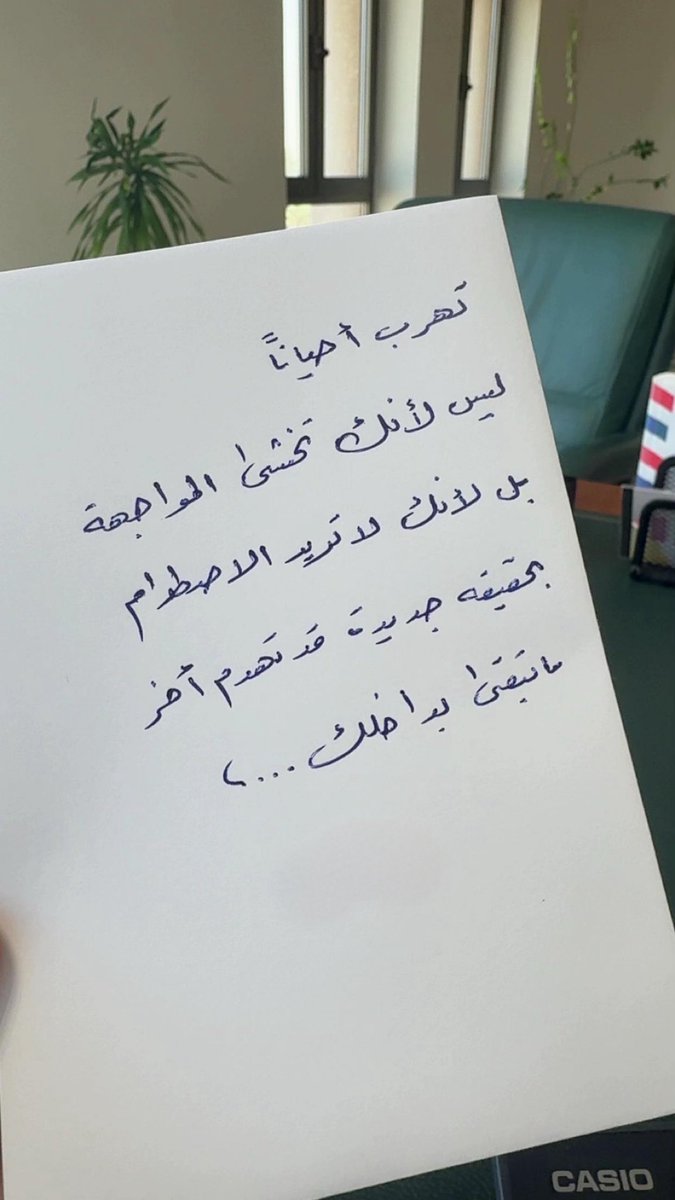 تهرب أحياناً
ليس لأنك تخشى المواجهة
بل لأنك لا تريد الاصطدام
بحقيقه جديدة قد تهدم أخر
ما تبقى بداخلك ...،
CASIO